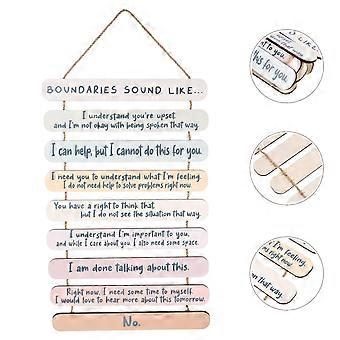 BOUNDARIES SOUND LIKE...
I understand you're upset,
and I'm not okay with being spoken that way.
I can help, but I cannot do this for you.
I need you to understand what I'm feeling.
I do not need help to solve problems right now.
You have a right to think that
but I do not see the situation that way.
I understand I'm important to you,
and while I care about you, I also need some space.
I am done talking about this.
Right now, I need some time to myself.
I would love to hear more about this tomorrow.
No.
LIKE...
t to you.
this for you.
I'm feeling.
ms right now.
on that way.